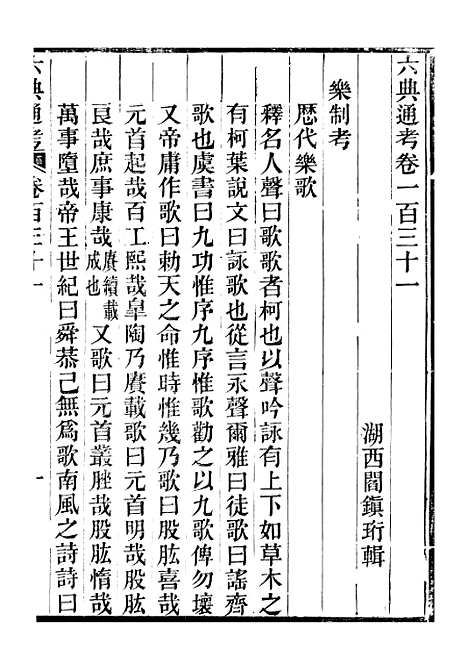 六典通考卷一百三十一
湖西閻鎭珩輯
樂制考
歷代樂歌
釋名人聲曰歌歌者柯也以聲吟詠有上下如草木之
有柯葉說文曰詠歌也從言永聲爾雅曰徒歌曰謠齊
歌也虞書曰九功惟序九序惟歌勸之以九歌俾勿壞
又帝庸作歌曰勅天之命惟時惟幾乃歌曰股肱喜哉
元首起哉百工熙哉皐陶乃賡載歌曰元首明哉股肱
良哉庶事康哉賡續載成也又歌曰元首叢脞哉股肱惰哉
萬事墮哉帝王世紀曰舜恭己無爲歌南風之詩詩曰
六典通考 卷百三十一 一